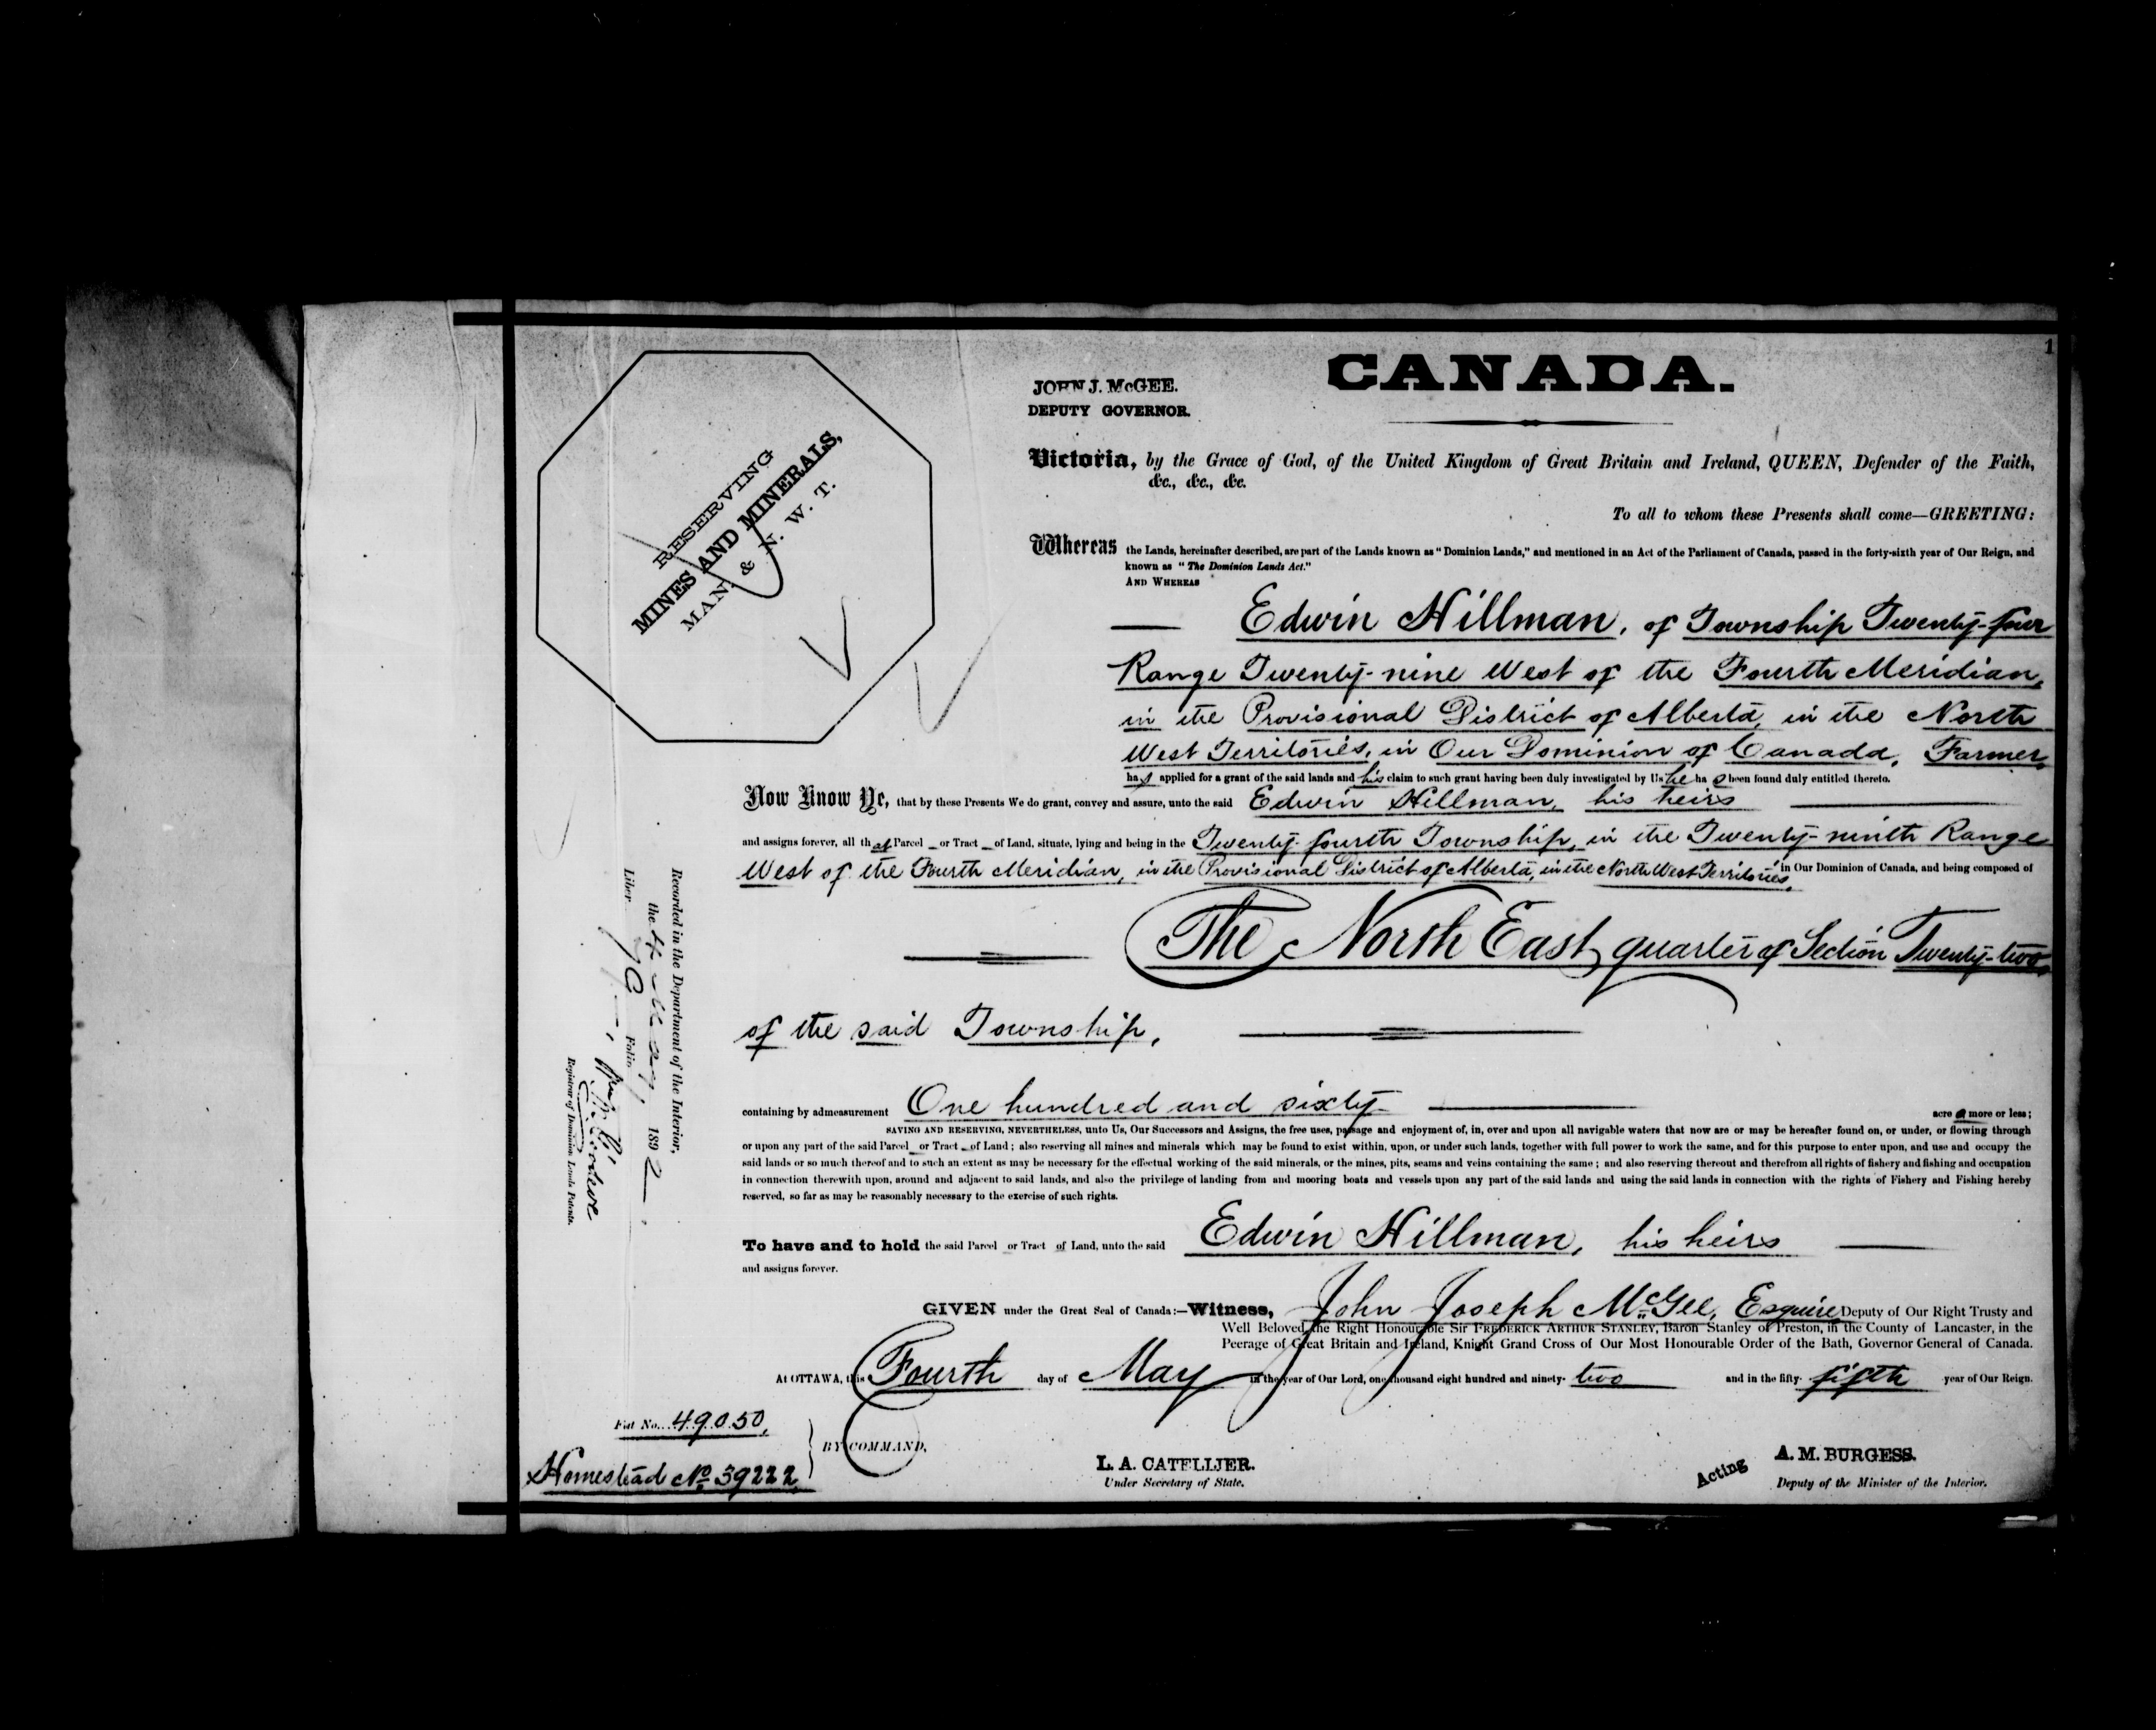 1
CANADA.
JOHN J. McGEE.
DEPUTY GOVERNOR.
RESERVING
MINES AND MINERALS,
MAN. & N. W. T.
Victoria, by the Grace of God, of the United Kingdom of Great Britain and Ireland, QUEEN, Defender of the Faith,
&c., &c., &c.
To all to whom these Presents shall come—GREETING:
Whereas the Lands, hereinafter described, are part of the Lands known as "Dominion Lands," and mentioned in an Act of the Parliament of Canada, passed in the forty-sixth year of Our Reign, and
known as "The Dominion Lands Act."
AND WHEREAS
Edwin Hillman, of Township Twenty-four
Range Twenty-nine West of the Fourth Meridian,
in the Provisional District of Alberta, in the North
West Territories, in Our Dominion of Canada, Farmer,
has applied for a grant of the said lands and his claim to such grant having been duly investigated by Us he has been found duly entitled thereto.
Now Know Ye, that by these Presents We do grant, convey and assure, unto the said Edwin Hillman, his heirs
and assigns forever, all that Parcel or Tract of Land, situate, lying and being in the Twenty-fourth Township, in the Twenty-ninth Range
West of the Fourth Meridian, in the Provisional District of Alberta, in the North West Territories, in Our Dominion of Canada, and being composed of
The North East quarter of Section Twenty-two,
of the said Township,
containing by admeasurement One hundred and sixty acres more or less;
SAVING AND RESERVING, NEVERTHELESS, unto Us, Our Successors and Assigns, the free uses, passage and enjoyment of, in, over and upon all navigable waters that now are or may be hereafter found on, or under, or flowing through
or upon any part of the said Parcel or Tract of Land; also reserving all mines and minerals which may be found to exist within, upon, or under such lands, together with full power to work the same, and for this purpose to enter upon, and use and occupy the
said lands or so much thereof and to such an extent as may be necessary for the effectual working of the said minerals, or the mines, pits, seams and veins containing the same; and also reserving thereout and therefrom all rights of fishery and fishing and occupation
in connection therewith upon, around and adjacent to said lands, and also the privilege of landing from and mooring boats and vessels upon any part of the said lands and using the said lands in connection with the rights of Fishery and Fishing hereby
reserved, so far as may be reasonably necessary to the exercise of such rights.
To have and to hold the said Parcel or Tract of Land, unto the said Edwin Hillman, his heirs
and assigns forever.
GIVEN under the Great Seal of Canada:—Witness, John Joseph McGee, Esquire, Deputy of Our Right Trusty and
Well Beloved the Right Honourable Sir FREDERICK ARTHUR STANLEY, Baron Stanley of Preston, in the County of Lancaster, in the
Peerage of Great Britain and Ireland, Knight Grand Cross of Our Most Honourable Order of the Bath, Governor General of Canada.
At OTTAWA, this Fourth day of May in the year of Our Lord, one thousand eight hundred and ninety-two and in the fifty-fifth year of Our Reign.
Fiat No. 49050,
Homestead No 39222,
BY COMMAND,
L. A. CATELLIER.
Under Secretary of State.
Acting
A. M. BURGESS.
Deputy of the Minister of the Interior.
Recorded in the Department of the Interior,
the 4 May, 1892,
Liber Folio
Registrar of Dominion Lands Patents.